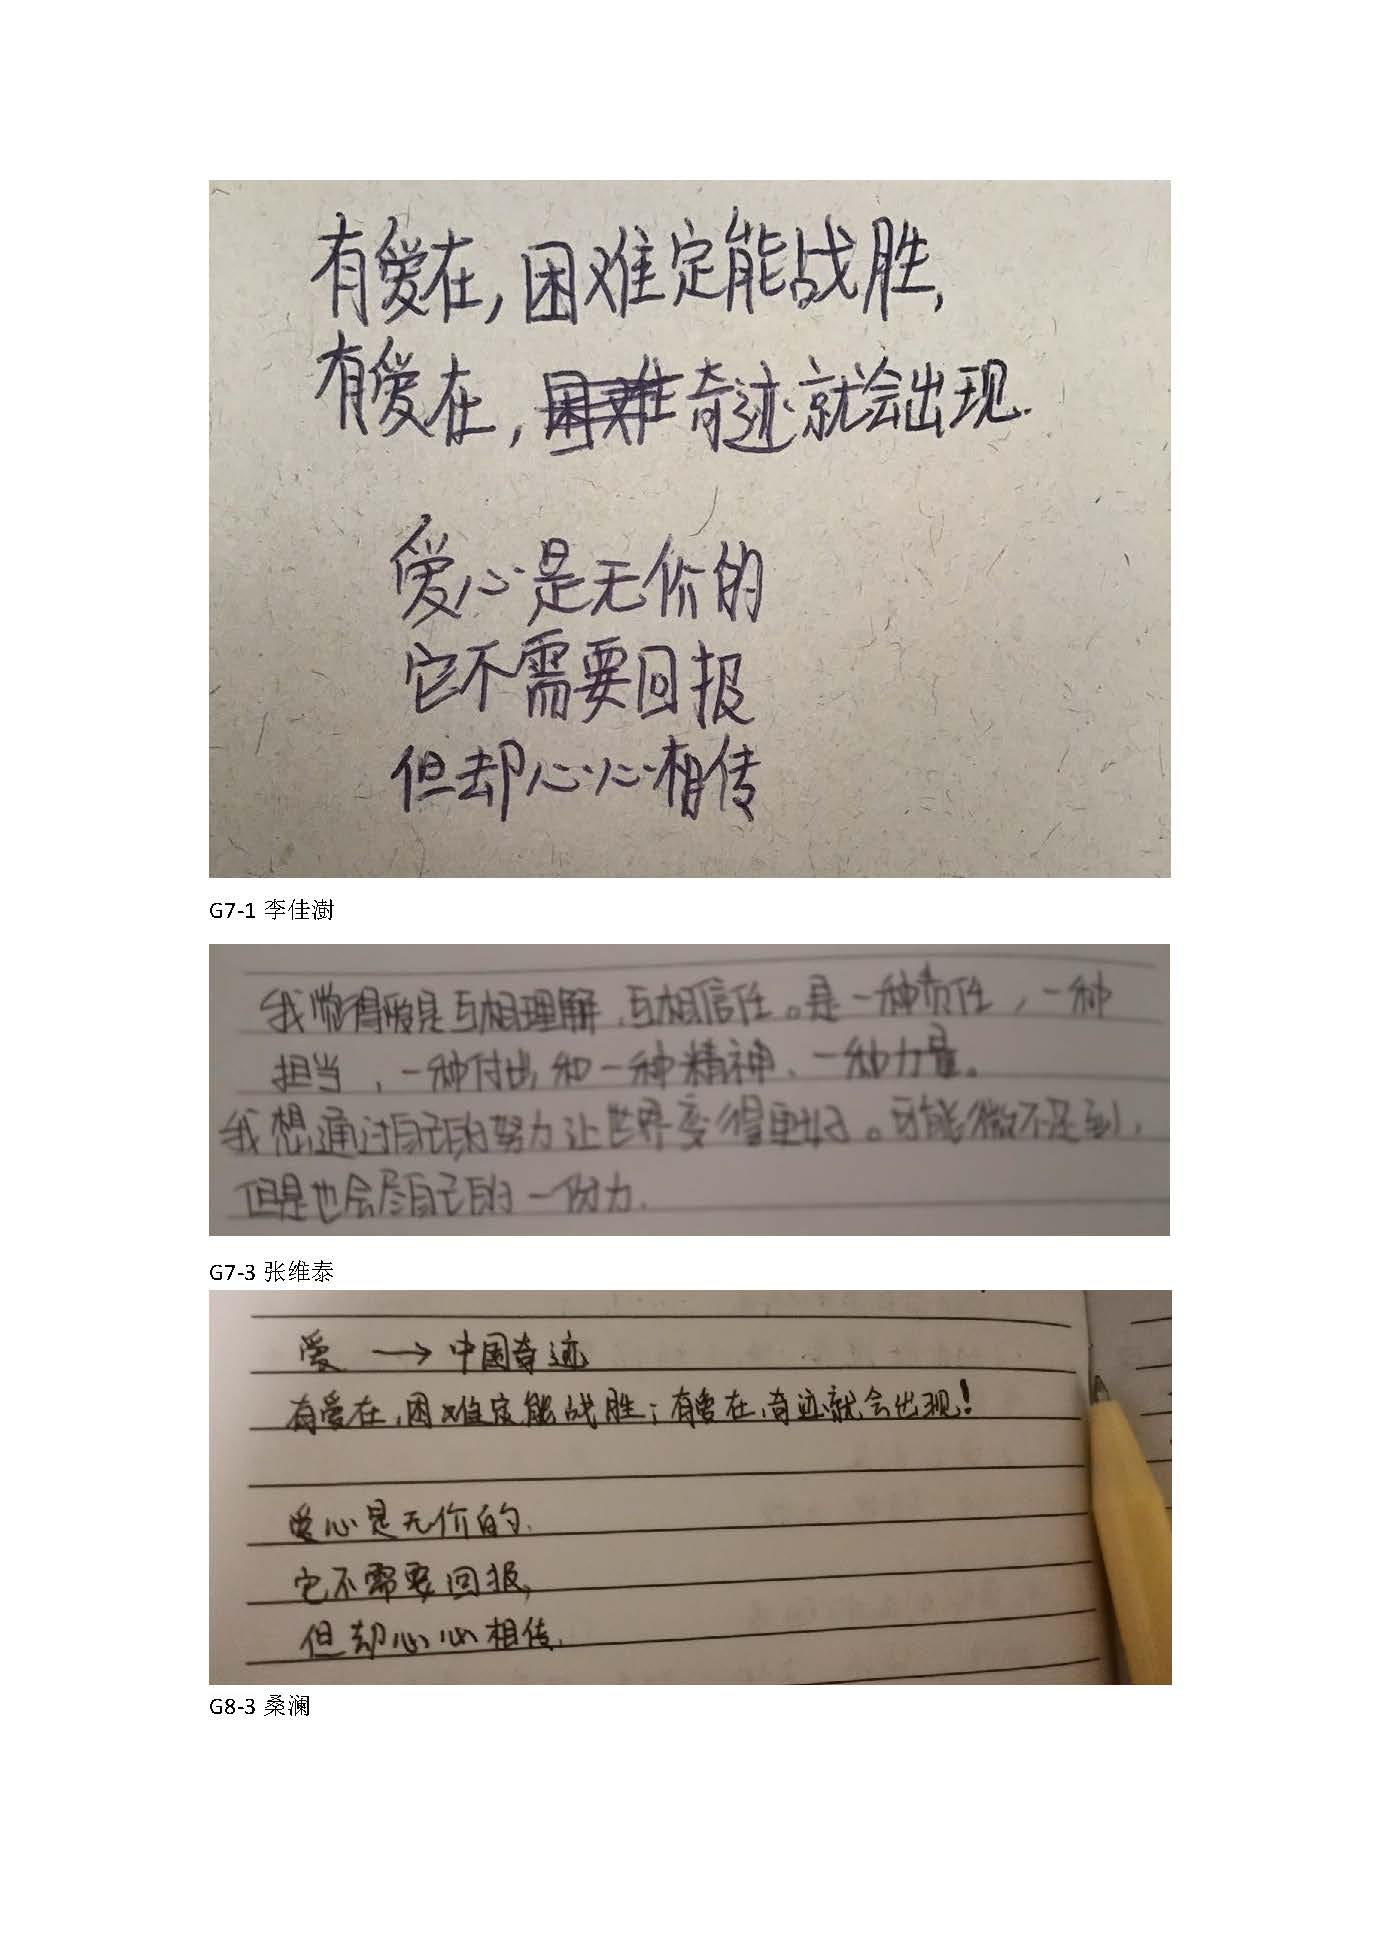 有爱在,困难定能战胜,
有爱在,困难奇迹就会出现.
爱心是无价的
它不需要回报
但却心心相传
G7-1 李佳澍
我觉得爱是互相理解、互相信任。是一种责任,一种
担当,一种付出和一种精神、一种力量。
我想通过自己的努力让世界变得更好。可能微不足到,
但是也会尽自己的一份力.
G7-3 张维泰
爱 → 中国奇迹
有爱在,困难定能战胜;有爱在,奇迹就会出现!
爱心是无价的.
它不需要回报,
但却心心相传.
G8-3 桑澜